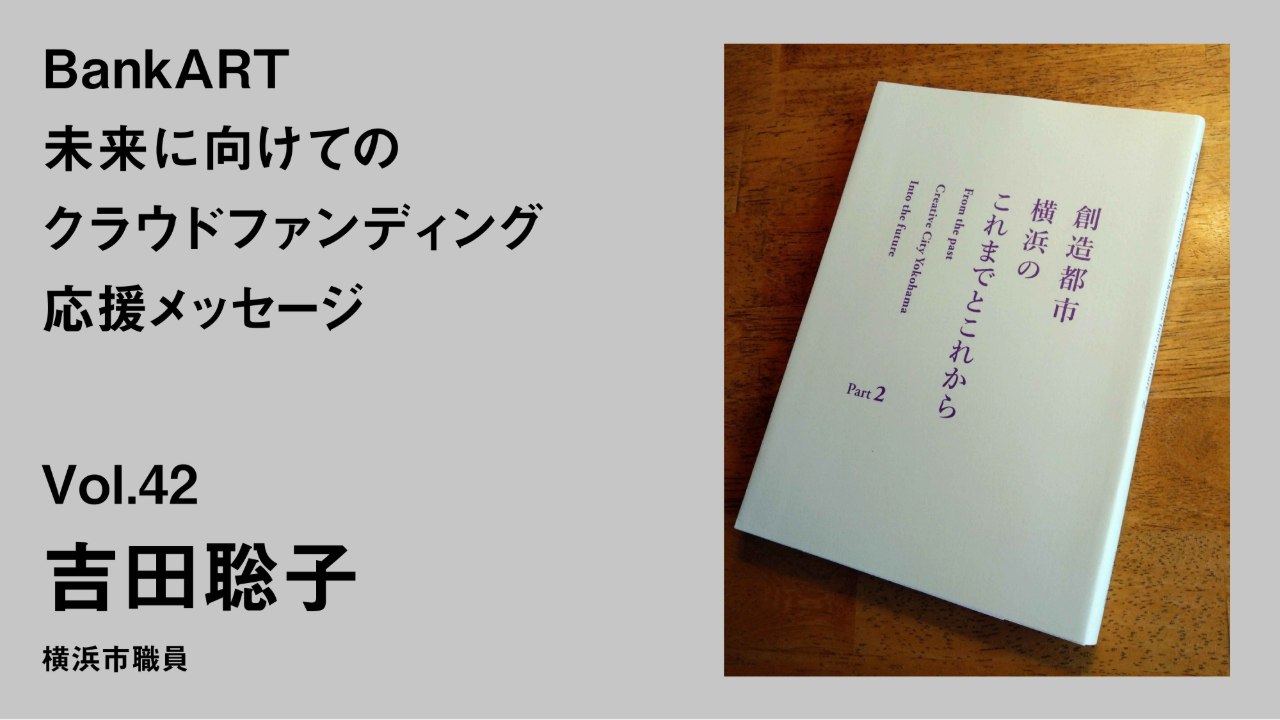 BankART
未来に向けての
クラウドファンディング
応援メッセージ
Vol.42
吉田聡子
横浜市職員
創造都市
横浜の
これまでとこれから
From the past
Creative City Yokohama
Into the future
Part 2